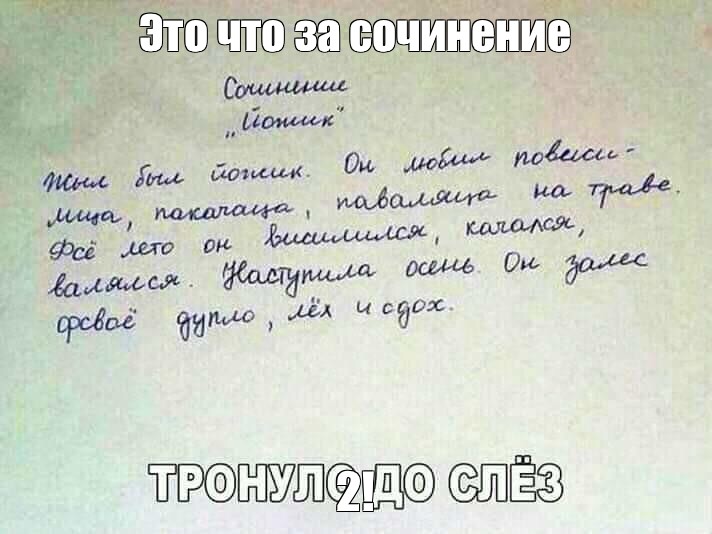 Это что за сочинение
Сочинение
„Йожик"
Жыл был йожик. Он любил повисси-
лица, покачаца, паваляца на траве.
Фсё лето он висилился, качался,
валялся. Наступила осень. Он залес
фсваё дупло, лёх и сдох.
ТРОНУЛО ДО СЛЁЗ
2!